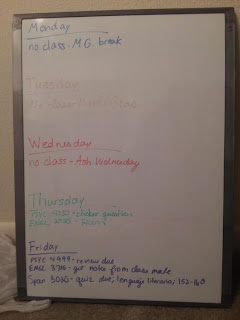 Monday
no class - M.G. break
Tuesday
No class - Mardi Gras
Wednesday
no class - Ash Wednesday
Thursday
PSYC 4050 - clicker question
Friday
PSYC 4999 - review due
notes from class mate
Span 3060 - quiz due; lenguaje literario; 152-160